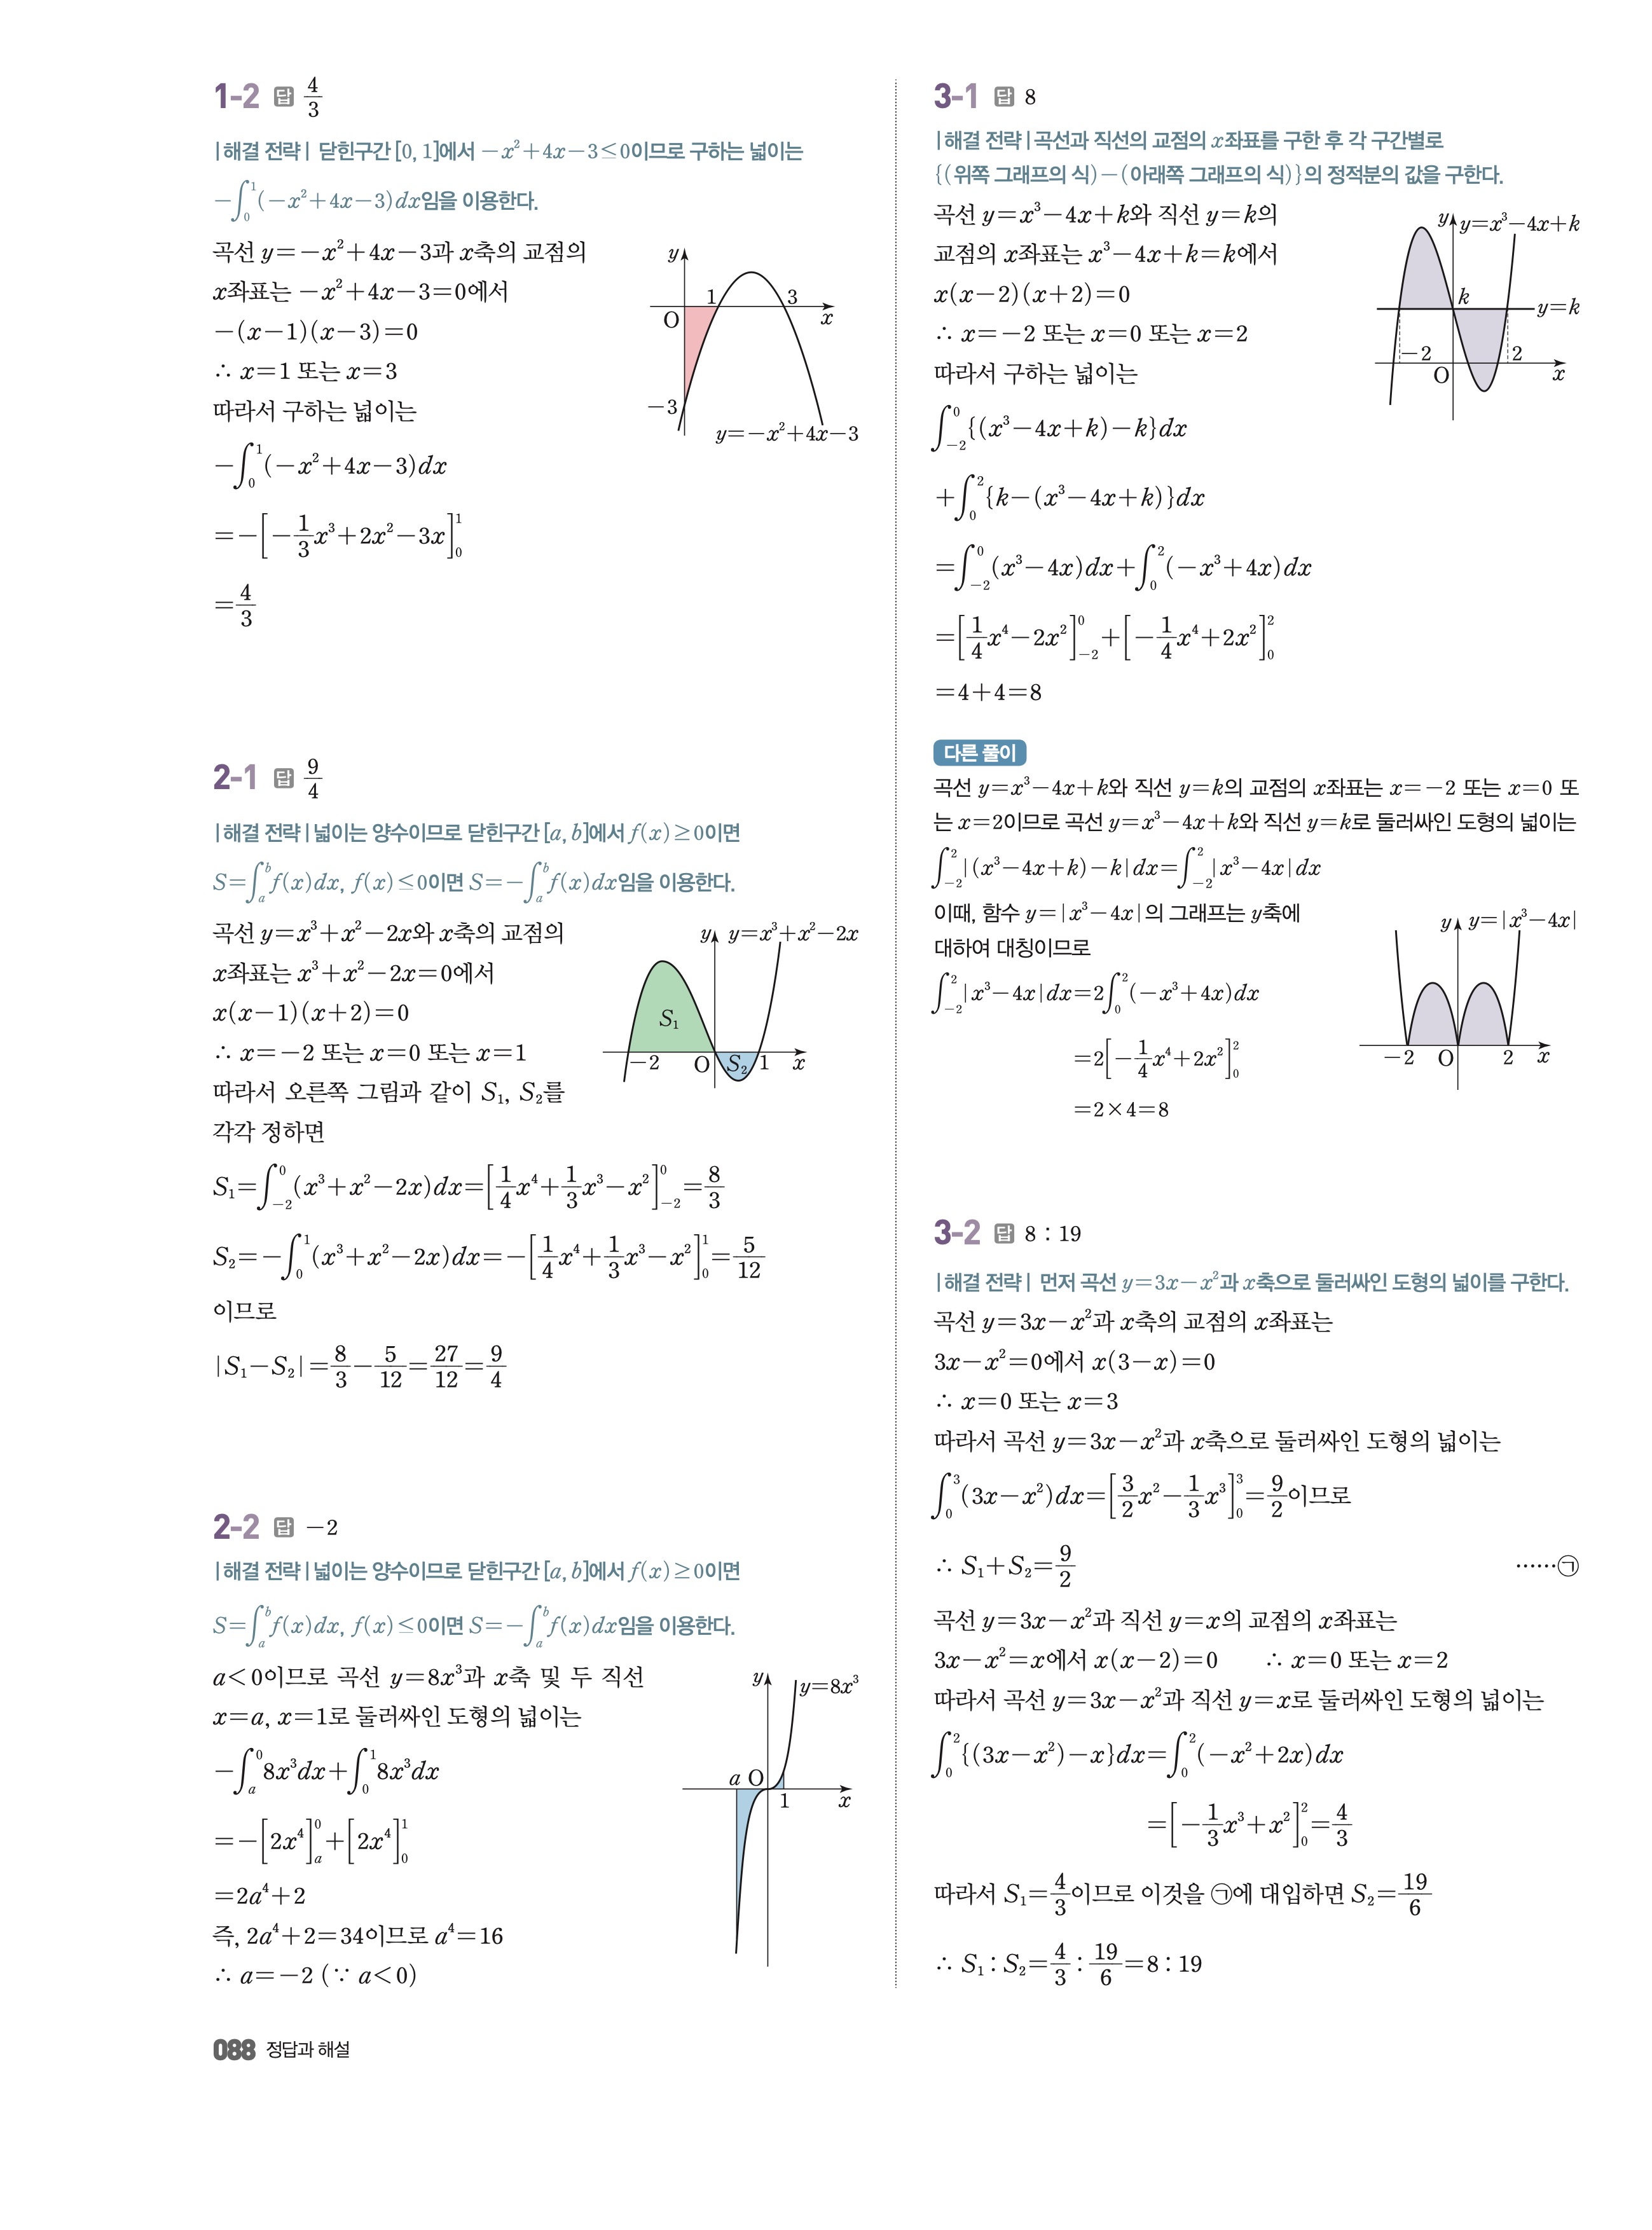 1-2 답 4/3
|해결 전략| 닫힌구간 [0, 1]에서 −x²+4x−3≤0이므로 구하는 넓이는
−∫₀¹(−x²+4x−3)dx임을 이용한다.
곡선 y=−x²+4x−3과 x축의 교점의
x좌표는 −x²+4x−3=0에서
−(x−1)(x−3)=0
∴ x=1 또는 x=3
따라서 구하는 넓이는
−∫₀¹(−x²+4x−3)dx
=−[−1/3x³+2x²−3x]₀¹
=4/3
y
1
3
O
x
−3
y=−x²+4x−3
2-1 답 9/4
|해결 전략| 넓이는 양수이므로 닫힌구간 [a, b]에서 f(x)≥0이면
S=∫ₐᵇf(x)dx, f(x)≤0이면 S=−∫ₐᵇf(x)dx임을 이용한다.
곡선 y=x³+x²−2x와 x축의 교점의
x좌표는 x³+x²−2x=0에서
x(x−1)(x+2)=0
∴ x=−2 또는 x=0 또는 x=1
따라서 오른쪽 그림과 같이 S₁, S₂를
각각 정하면
y y=x³+x²−2x
S₁
−2 O S₂ 1 x
S₁=∫₋₂⁰(x³+x²−2x)dx=[1/4x⁴+1/3x³−x²]₋₂⁰=8/3
S₂=−∫₀¹(x³+x²−2x)dx=−[1/4x⁴+1/3x³−x²]₀¹=5/12
이므로
|S₁−S₂|=8/3−5/12=27/12=9/4
2-2 답 −2
|해결 전략| 넓이는 양수이므로 닫힌구간 [a, b]에서 f(x)≥0이면
S=∫ₐᵇf(x)dx, f(x)≤0이면 S=−∫ₐᵇf(x)dx임을 이용한다.
a<0이므로 곡선 y=8x³과 x축 및 두 직선
x=a, x=1로 둘러싸인 도형의 넓이는
−∫ₐ⁰8x³dx+∫₀¹8x³dx
=−[2x⁴]ₐ⁰+[2x⁴]₀¹
=2a⁴+2
즉, 2a⁴+2=34이므로 a⁴=16
∴ a=−2 (∵ a<0)
y
y=8x³
a O
1
x
088 정답과 해설
3-1 답 8
|해결 전략| 곡선과 직선의 교점의 x좌표를 구한 후 각 구간별로
{(위쪽 그래프의 식)−(아래쪽 그래프의 식)}의 정적분의 값을 구한다.
곡선 y=x³−4x+k와 직선 y=k의
교점의 x좌표는 x³−4x+k=k에서
x(x−2)(x+2)=0
∴ x=−2 또는 x=0 또는 x=2
따라서 구하는 넓이는
∫₋₂⁰{(x³−4x+k)−k}dx
+∫₀²{k−(x³−4x+k)}dx
=∫₋₂⁰(x³−4x)dx+∫₀²(−x³+4x)dx
=[1/4x⁴−2x²]₋₂⁰+[−1/4x⁴+2x²]₀²
=4+4=8
y y=x³−4x+k
k
y=k
−2
2
O
x
다른 풀이
곡선 y=x³−4x+k와 직선 y=k의 교점의 x좌표는 x=−2 또는 x=0 또
는 x=2이므로 곡선 y=x³−4x+k와 직선 y=k로 둘러싸인 도형의 넓이는
∫₋₂²|(x³−4x+k)−k|dx=∫₋₂²|x³−4x|dx
이때, 함수 y=|x³−4x|의 그래프는 y축에
대하여 대칭이므로
∫₋₂²|x³−4x|dx=2∫₀²(−x³+4x)dx
=2[−1/4x⁴+2x²]₀²
=2×4=8
y y=|x³−4x|
−2 O 2 x
3-2 답 8 : 19
|해결 전략| 먼저 곡선 y=3x−x²과 x축으로 둘러싸인 도형의 넓이를 구한다.
곡선 y=3x−x²과 x축의 교점의 x좌표는
3x−x²=0에서 x(3−x)=0
∴ x=0 또는 x=3
따라서 곡선 y=3x−x²과 x축으로 둘러싸인 도형의 넓이는
∫₀³(3x−x²)dx=[3/2x²−1/3x³]₀³=9/2이므로
∴ S₁+S₂=9/2 ……㉠
곡선 y=3x−x²과 직선 y=x의 교점의 x좌표는
3x−x²=x에서 x(x−2)=0 ∴ x=0 또는 x=2
따라서 곡선 y=3x−x²과 직선 y=x로 둘러싸인 도형의 넓이는
∫₀²{(3x−x²)−x}dx=∫₀²(−x²+2x)dx
=[−1/3x³+x²]₀²=4/3
따라서 S₁=4/3이므로 이것을 ㉠에 대입하면 S₂=19/6
∴ S₁ : S₂=4/3 : 19/6=8 : 19